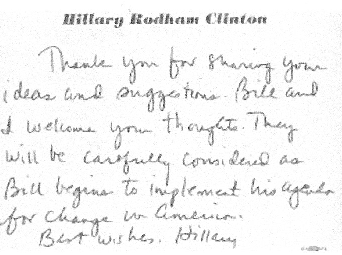 Hillary Rodham Clinton
Thank you for sharing your
ideas and suggestions. Bill and
I welcome your thoughts. They
will be carefully considered as
Bill begins to implement his agenda
for change in America.
Best wishes. Hillary